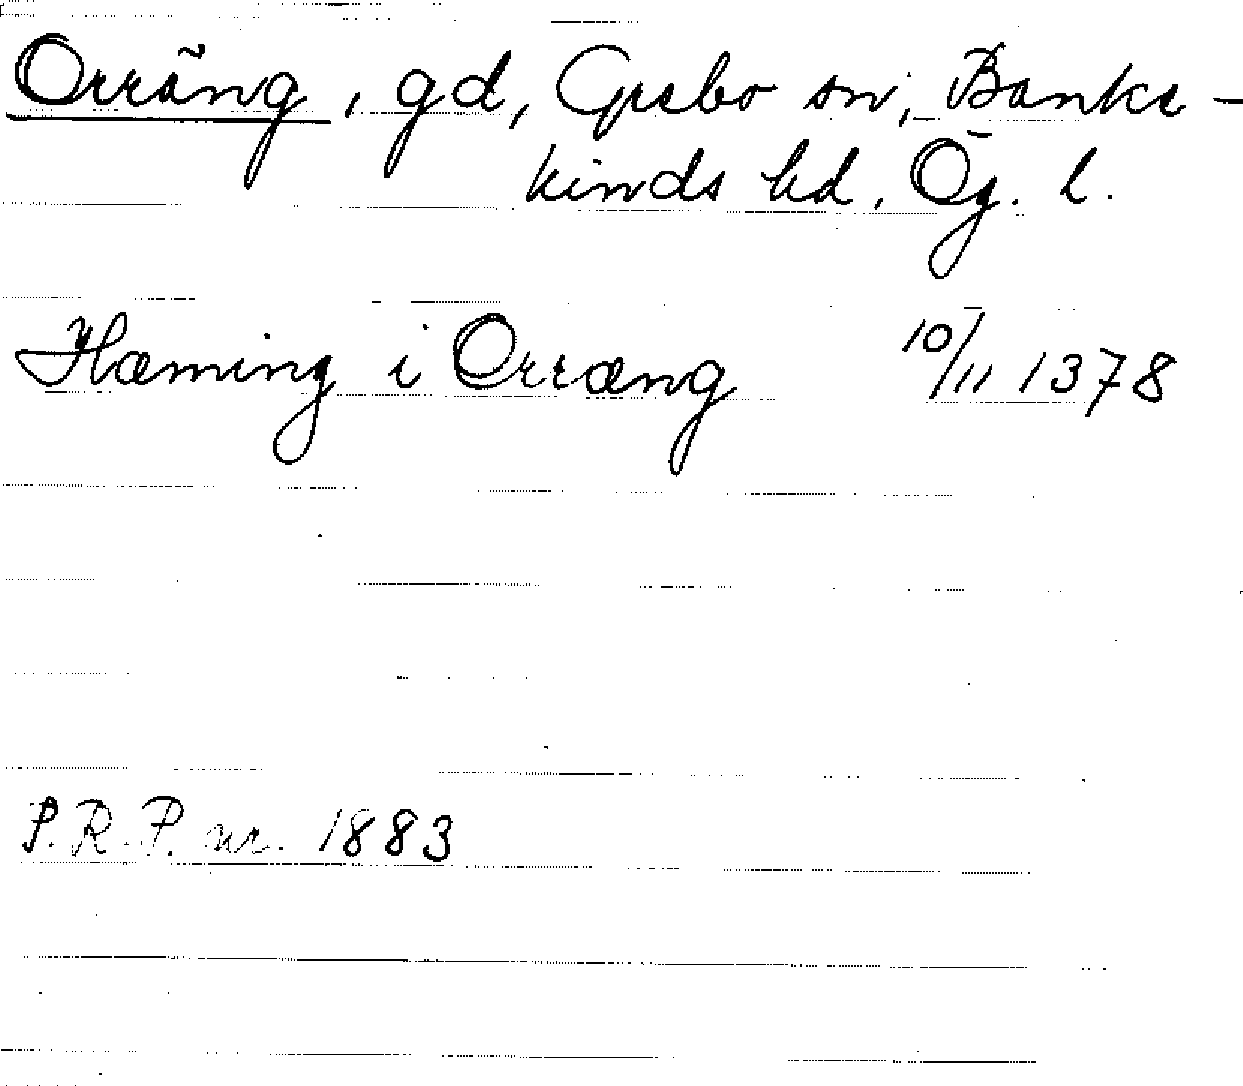 Orräng, gd, Grebo sn, Banke-
kinds hd, Ög. l.
Hæming i Orræng 10/11 1378
P.R.P. nr. 1883